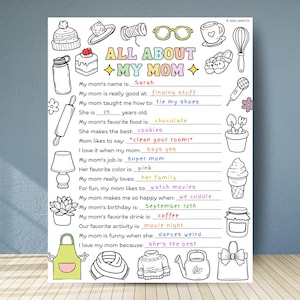 ALL ABOUT
MY MOM
My mom's name is: Sarah
My mom is really good at: finding stuff
My mom taught me how to: tie my shoes
She is 25 years old.
My mom's favorite food is: chocolate
She makes the best: cookies
Mom likes to say: "clean your room!"
I love it when my mom: says yes
My mom's job is: super mom
Her favorite color is: pink
My mom really loves: her family
For fun, my mom likes to: watch movies
My mom makes me so happy when: we cuddle
My mom's birthday is: September 10th
My mom's favorite drink is: coffee
Our favorite activity is: movie night
My mom is funny when she: dances weird
I love my mom because: she's the best